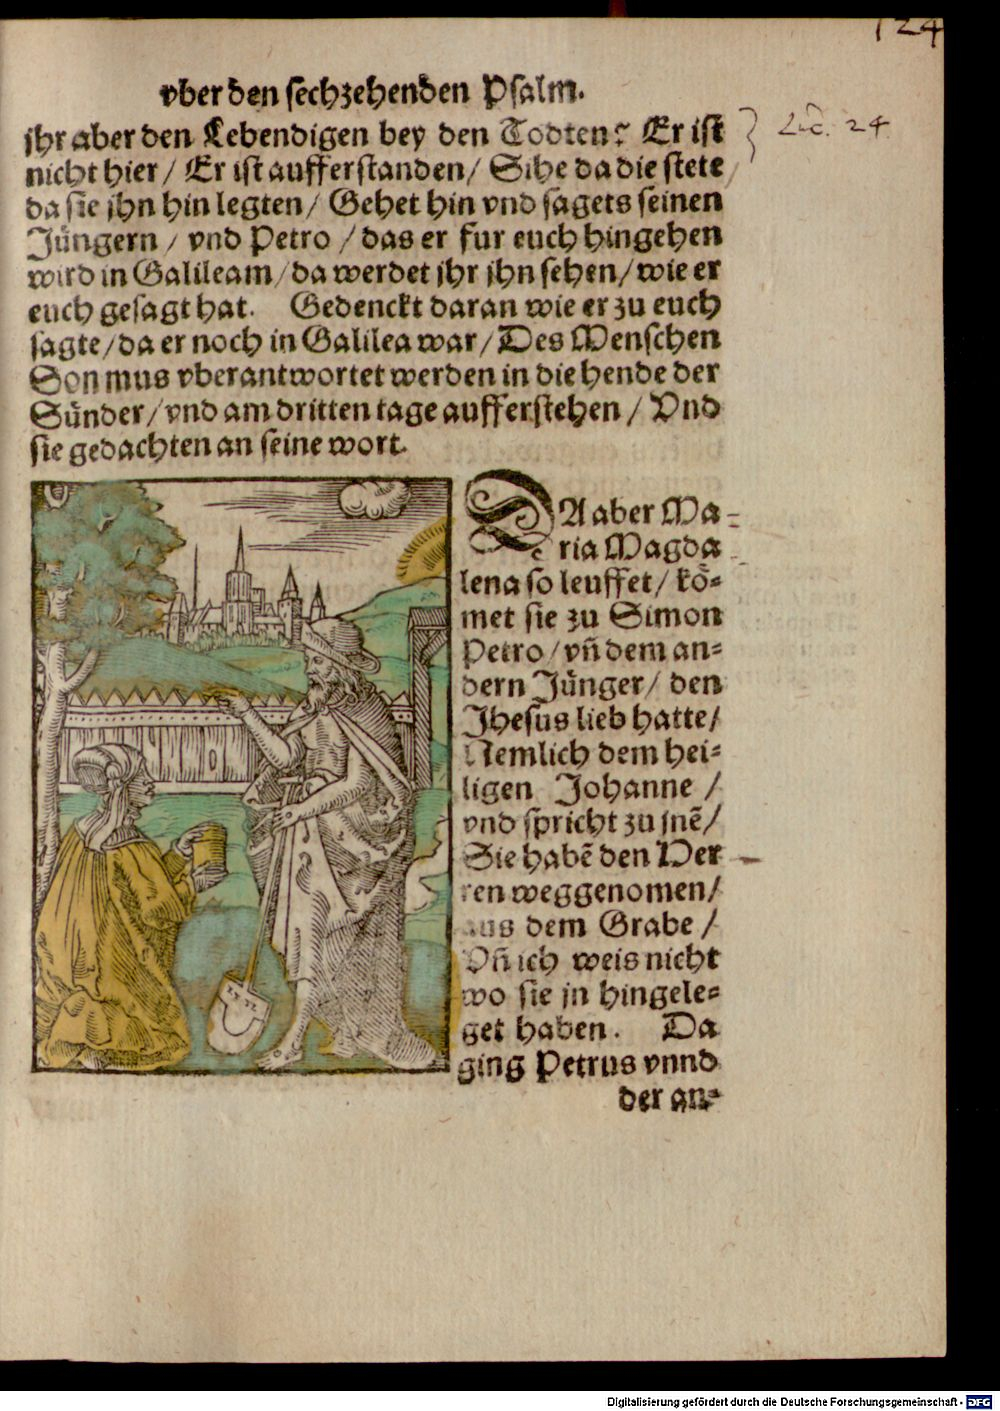 124
vber den sechzehenden Psalm.
jhr aber den Lebendigen bey den Todten? Er ist
Luc. 24
nicht hier / Er ist aufferstanden / Sihe da die stete
da sie jhn hin legten / Gehet hin vnd sagets seinen
Jüngern / vnd Petro / das er fur euch hingehen
wird in Galileam / da werdet jhr jhn sehen / wie er
euch gesagt hat. Gedenckt daran wie er zu euch
sagte / da er noch in Galilea war / Des Menschen
Son mus vberantwortet werden in die hende der
Sünder / vnd am dritten tage aufferstehen / Vnd
sie gedachten an seine wort.
DA aber Ma-
ria Magda
lena so leuffet / kö-
met sie zu Simon
Petro / vñ dem an-
dern Jünger / den
Jhesus lieb hatte /
Nemlich dem hei-
ligen Johanne /
vnd spricht zu jnē /
Sie habē den Her
ren weggenomen /
aus dem Grabe /
Vñ ich weis nicht
wo sie jn hingele-
get haben. Da
ging Petrus vnnd
der an-
Digitalisierung gefördert durch die Deutsche Forschungsgemeinschaft - DFG